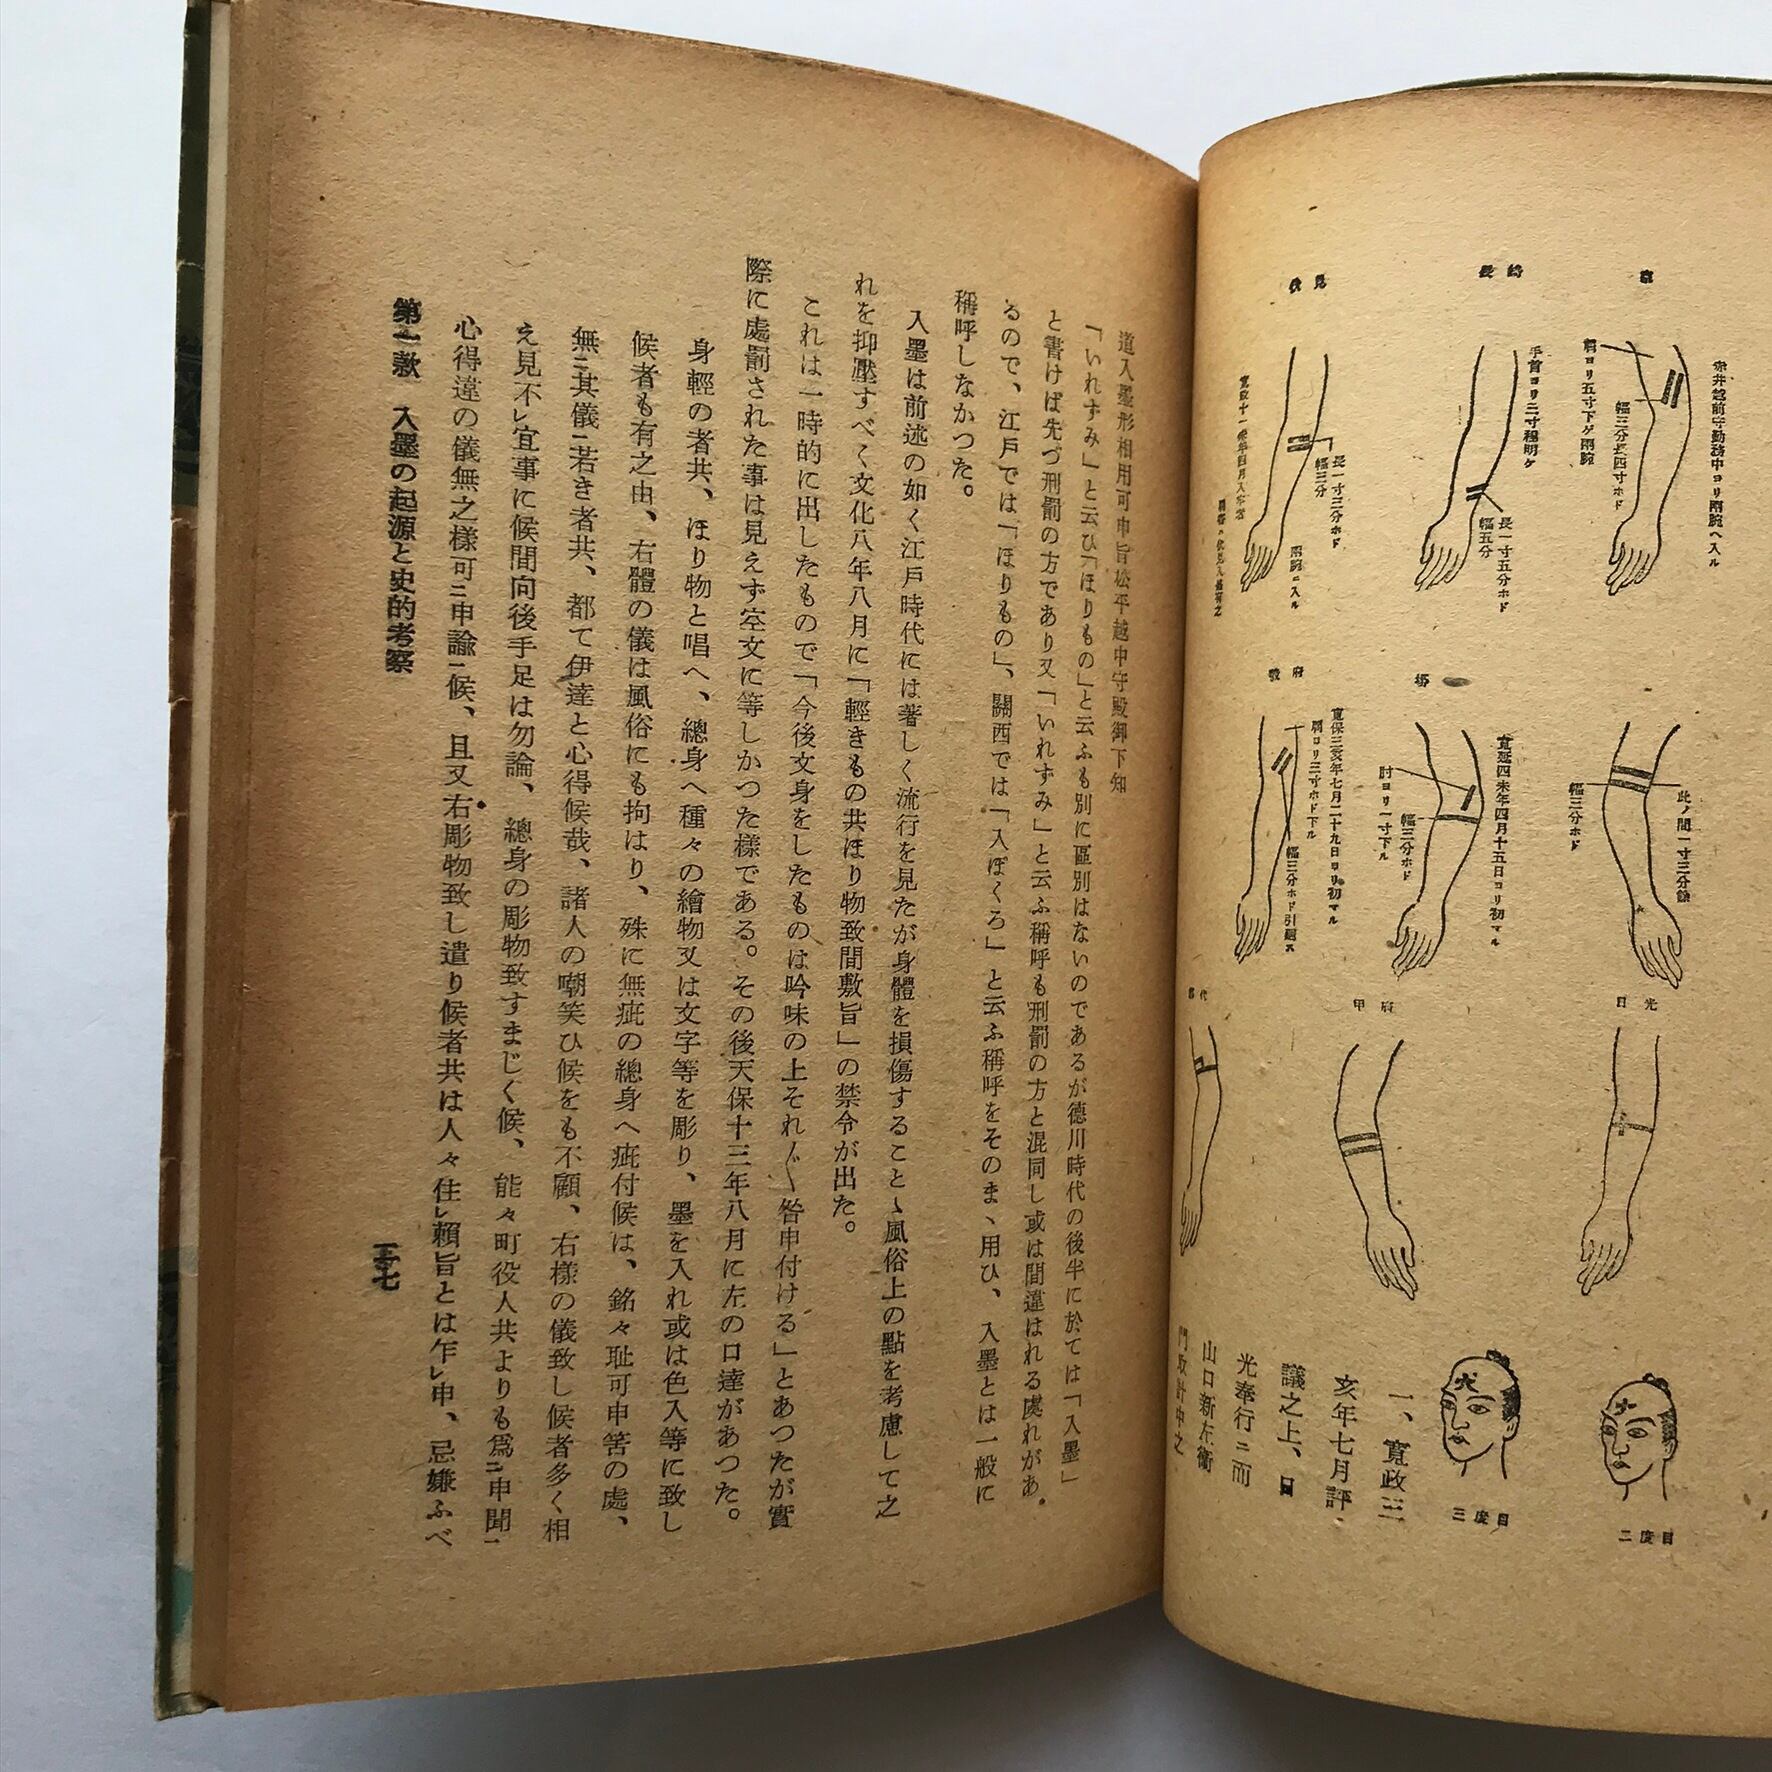 伏見
長崎
長一寸三分ホド
幅三分
兩腕ニ入ル
手首ヨリ二寸程明ケ
長一寸五分ホド
幅五分
赤井越前守勤務中ヨリ兩腕ヘ入ル
幅三分長四寸ホド
肩ヨリ五寸下ゲ兩腕
寛保三亥年七月二十九日ヨリ初マル
肩ヨリ三寸ホド下ル
幅三分ホド引廻ス
寛延四未年四月十五日ヨリ初マル
肘ヨリ一寸下ル
幅三分ホド
幅三分ホド
甲府
日光
犬
二度目
三度目
一、寛政三
亥年七月評
議之上、日
光奉行ニ而
山口新左衞
道入墨形相用可申旨松平越中守殿御下知
「いれずみ」と云ひ「ほりもの」と云ふも別に區別はないのであるが德川時代の後半に於ては「入墨」
と書けば先づ刑罰の方であり又「いれずみ」と云ふ稱呼も刑罰の方と混同し或は間違はれる虞れがあ
るので、江戸では「ほりもの」、關西では「入ぼくろ」と云ふ稱呼をそのまゝ用ひ、入墨とは一般に
稱呼しなかつた。
入墨は前述の如く江戸時代には著しく流行を見たが身體を損傷することゝ風俗上の點を考慮して之
れを抑壓すべく文化八年八月に「輕きもの共ほり物致間敷旨」の禁令が出た。
これは一時的に出したもので「今後文身をしたものは吟味の上それ〴〵咎申付ける」とあつたが實
際に處罰された事は見えず空文に等しかつた樣である。その後天保十三年八月に左の口達があつた。
身輕の者共、ほり物と唱へ、總身へ種々の繪物又は文字等を彫り、墨を入れ或は色入等に致し
候者も有之由、右體の儀は風俗にも拘はり、殊に無疵の總身へ疵付候は、銘々耻可申筈の處、
無ニ其儀ニ若き者共、都て伊達と心得候哉、諸人の嘲笑ひ候をも不顧、右樣の儀致し候者多く相
え見不レ宜事に候間向後手足は勿論、總身の彫物致すまじく候、能々町役人共よりも爲ニ申聞一
心得違の儀無之樣可ニ申諭一候、且又右彫物致し遣り候者共は人々住レ賴旨とは乍レ申、忌嫌ふべ
第一款　入墨の起源と史的考察
三七